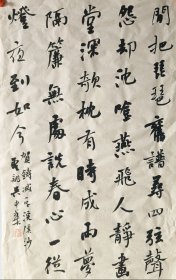 閒把琵琶舊譜尋四弦聲
怨却沈吟燕飛人靜畫
堂深欹枕有時成雨夢
隔簾無處說春心一從
燈夜到如今
賀鑄減字浣溪沙